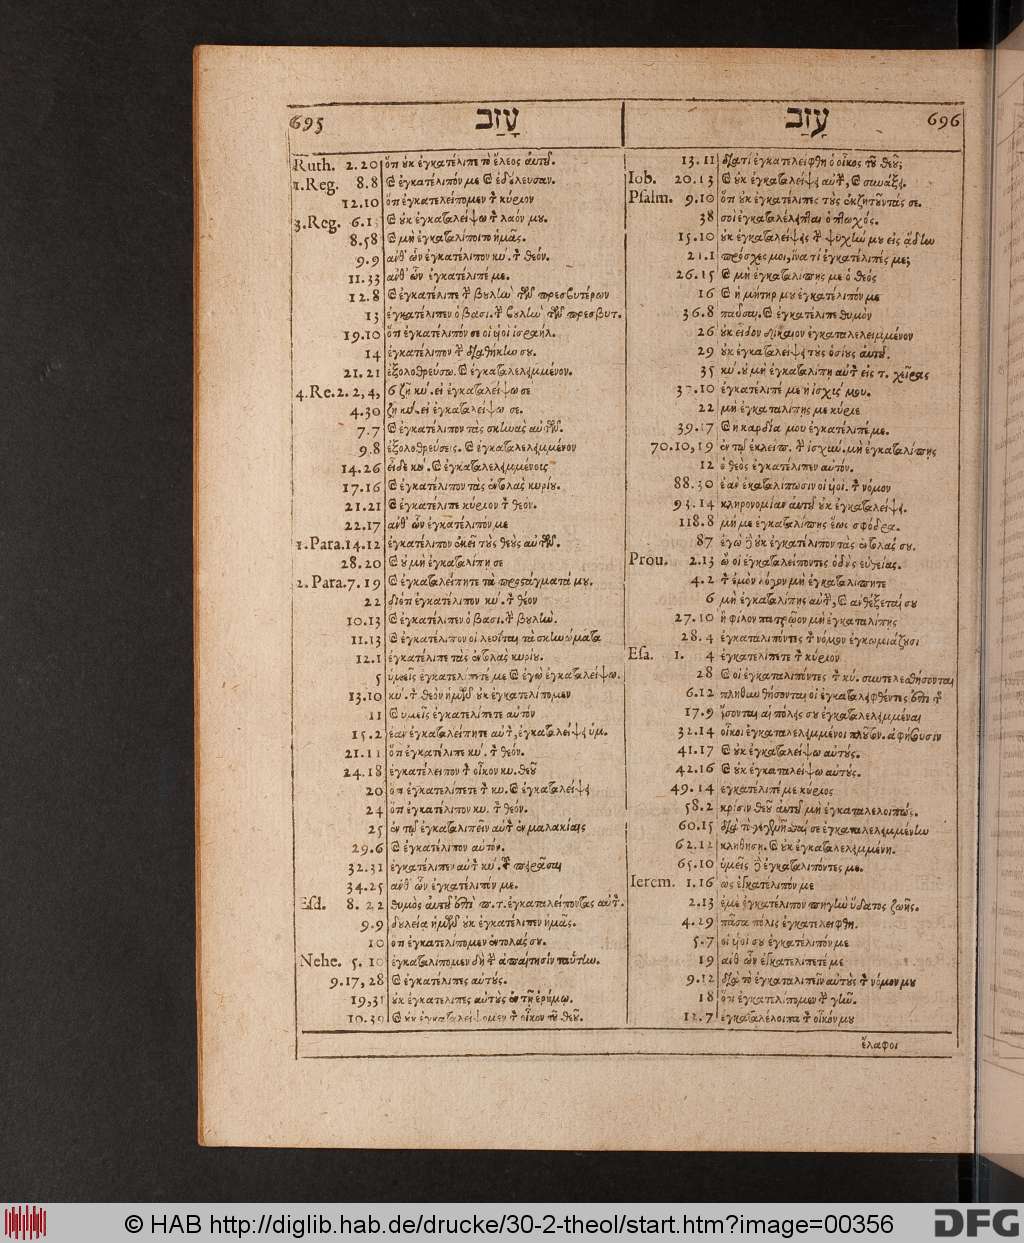 695 עָזַב
עָזַב 696
Ruth. 2.20 ὅτι οὐκ ἐγκατέλιπε τὸ ἔλεος αὐτοῦ.
1.Reg. 8.8 καὶ ἐγκατέλιπόν με καὶ ἐδούλευσαν.
12.10 ὅτι ἐγκατελείπομεν τὸν κύριον
3.Reg. 6.13 καὶ οὐκ ἐγκαταλείψω τὸν λαόν μου.
8.58 καὶ μὴ ἐγκαταλίποιτο ἡμᾶς.
9.9 ἀνθ' ὧν ἐγκατέλιπον κύ. τὸν θεόν.
11.33 ἀνθ' ὧν ἐγκατέλιπέ με.
12.8 καὶ ἐγκατέλιπε τὴν βουλὴν τῶν πρεσβυτέρων
13 ἐγκατέλιπεν ὁ βασι. τὴν βουλὴν τῶν πρεσβυτ.
19.10 ὅτι ἐγκατέλιπόν σε οἱ υἱοὶ ἰσραήλ.
14 ἐγκατέλιπον τὴν διαθήκην σου.
21.21 ἐξολοθρεύσω. καὶ ἐγκαταλελειμμένον.
4.Re.2. 2,4, 6 ζῇ κύ. εἰ ἐγκαταλείψω σε
4.30 ζῇ κύ. εἰ ἐγκαταλείψω σε.
7.7 καὶ ἐγκατέλιπον τὰς σκηνὰς αὐτῶν.
9.8 ἐξολοθρεύσεις. καὶ ἐγκαταλελειμμένον
14.26 εἶδε κύ. καὶ ἐγκαταλελειμμένους
17.16 καὶ ἐγκατέλιπον τὰς ἐντολὰς κυρίου.
21.21 καὶ ἐγκατέλιπε κύριον τὸν θεον.
22.17 ἀνθ' ὧν ἐγκατέλιπόν με
1.Para.14.12 ἐγκατέλιπον ἐκεῖ τοὺς θεοὺς αὐτῶν.
28.20 καὶ οὐ μὴ ἐγκαταλίπῃ σε
2. Para.7.19 καὶ ἐγκαταλείπητε τὰ προστάγματά μου.
22 διότι ἐγκατέλιπον κύ. τὸν θεόν
10.13 καὶ ἐγκατέλιπεν ὁ βασι. τὴν βουλὴν.
11.13 καὶ ἐγκατέλιπον οἱ λευῖται τὰ σκηνώματα
12.1 ἐγκατέλιπε τὰς ἐντολὰς κυρίου.
5 ὑμεῖς ἐγκατελίπετέ με καὶ ἐγὼ ἐγκαταλείψω.
13.10 κύ. τὸν θεὸν ἡμῶν οὐκ ἐγκατελίπομεν
11 καὶ ὑμεῖς ἐγκατελίπετε αὐτόν
15.2 ἐὰν ἐγκαταλείπητε αὐτὸν, ἐγκαταλείψει ὑμ.
21.11 ὅτι ἐγκατέλιπε κύ. τὸν θεόν.
24.18 ἐγκατέλειπον τὸν οἶκον κυ. θεοῦ
20 ὅτι ἐγκατελίπετε τὸν κυ. καὶ ἐγκαταλείψει
24 ὅτι ἐγκατέλιπον κυ. τὸν θεόν.
25 ἐν τῷ ἐγκαταλιπεῖν αὐτὸν ἐν μαλακίαις
29.6 καὶ ἐγκατέλιπον αὐτόν.
32.31 ἐγκατέλιπεν αὐτὸν κύ. τοῦ πειρᾶσαι
34.25 ἀνθ' ὧν ἐγκατέλιπόν με.
Esd. 8.22 θυμὸς αὐτοῦ ἐπὶ π.τ. ἐγκαταλείποντας αὐτ.
9.9 δουλεία ἡμῶν οὐκ ἐγκατέλιπεν ἡμᾶς.
10 ὅτι ἐγκατελίπομεν ἐντολάς σου.
Nehe. 5.10 ἐγκαταλίπομεν δὴ τὴν ἀπαίτησιν ταύτην.
9.17,28 καὶ ἐγκατέλιπες αὐτούς.
19,31 οὐκ ἐγκατέλιπες αὐτοὺς ἐν τῇ ἐρήμῳ.
10.39 καὶ οὐκ ἐγκαταλείψομεν τὸν οἶκον τοῦ θεοῦ.
13.11 διατί ἐγκατελείφθη ὁ οἶκος τοῦ θεοῦ;
Iob. 20.13 καὶ οὐκ ἐγκαταλείψει αὐτὴν, καὶ συνάξει.
Psalm. 9.10 ὅτι οὐκ ἐγκατέλιπες τοὺς ἐκζητοῦντάς σε.
38 σοὶ ἐγκαταλέλειπται ὁ πτωχός.
15.10 οὐκ ἐγκαταλείψεις τὴν ψυχήν μου εἰς ᾅδην
21.1 πρόσχες μοι, ἵνα τί ἐγκατέλιπές με;
26.15 καὶ μὴ ἐγκαταλίπῃς με ὁ θεός
16 καὶ ἡ μήτηρ μου ἐγκατέλιπόν με
36.8 παῦσαι. καὶ ἐγκατέλιπε θυμὸν
26 οὐκ εἶδον δίκαιον ἐγκαταλελειμμένον
29 οὐκ ἐγκαταλείψει τοὺς ὁσίους αὐτοῦ.
35 κύ. οὐ μὴ ἐγκαταλίπῃ αὐτὸν εἰς τ. χεῖρας
37.10 ἐγκατέλιπέ με ἡ ἰσχύς μου.
22 μὴ ἐγκαταλίπῃς με κύριε
39.17 καὶ ἡ καρδία μου ἐγκατέλιπέ με.
70.10,19 ἐν τῷ ἐκλειπ. τὴν ἰσχύν. μὴ ἐγκαταλίπῃς
12 ὁ θεὸς ἐγκατέλιπεν αὐτόν.
88.30 ἐὰν ἐγκαταλίπωσιν οἱ υἱοὶ. τὸν νόμον
93.14 κληρονομίαν αὐτοῦ οὐκ ἐγκαταλείψει.
118.8 μή με ἐγκαταλίπῃς ἕως σφόδρα.
87 ἐγὼ δὲ οὐκ ἐγκατέλιπον τὰς ἐντολάς σου.
Prou. 2.13 ὦ οἱ ἐγκαταλείποντες ὁδοὺς εὐθείας.
4.2 τὸν ἐμὸν λόγον μὴ ἐγκαταλίπητε
6 μὴ ἐγκαταλίπῃς αὐτὴν, καὶ ἀνθέξεταί σου
27.10 ἢ φίλον πατρῷον μὴ ἐγκαταλίπῃς
28.4 ἐγκαταλιπόντες τὸν νόμον ἐγκωμιάζουσι
Esa. 1. 4 ἐγκατελίπετε τὸν κύριον
28 καὶ οἱ ἐγκαταλιπόντες τὸν κύ. συντελεσθήσονται
6.12 πληθυνθήσονται οἱ ἐγκαταλειφθέντες ἐπὶ τῆς
17.9 ἔσονται αἱ πόλεις σου ἐγκαταλελειμμέναι
32.14 οἶκοι ἐγκαταλελειμμένοι πλοῦτον. ἀφήσουσιν
41.17 καὶ οὐκ ἐγκαταλείψω αὐτούς.
42.16 καὶ οὐκ ἐγκαταλείψω αὐτούς.
49.14 ἐγκατέλιπέ με κύριος
58.2 κρίσιν θεοῦ αὐτοῦ μὴ ἐγκαταλελοιπώς.
60.15 διὰ τὸ γεγενῆσθαί σε ἐγκαταλελειμμένην
62.12 κληθήσῃ. καὶ οὐκ ἐγκαταλελειμμένη.
65.10 ὑμεῖς δὲ ἐγκαταλιπόντες με.
Ierem. 1.16 ὡς ἐγκατέλιπόν με
2.13 ἐμὲ ἐγκατέλιπον πηγὴν ὕδατος ζωῆς.
4.29 πᾶσα πόλις ἐγκατελείφθη.
5.7 οἱ υἱοί σου ἐγκατέλιπόν με
19 ἀνθ' ὧν ἐγκατελίπετέ με
9.12 διὰ τὸ ἐγκαταλιπεῖν αὐτοὺς τὸν νόμον μου
18 ὅτι ἐγκατελίπομεν τὴν γῆν.
12.7 ἐγκαταλέλοιπα τὸν οἶκόν μου
ἔλαφοι
© HAB http://diglib.hab.de/drucke/30-2-theol/start.htm?image=00356
DFG